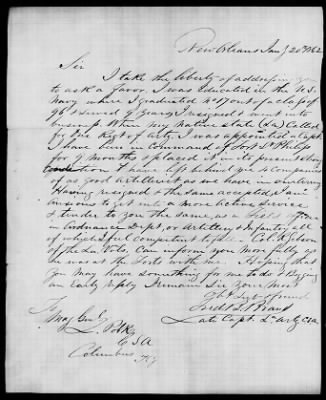 New Orleans Jany 20th 1862
Sir
I take the liberty of addressing you
to ask a favor. I was educated in the U.S.
Navy where I graduated No 17 out of a class of
96 & served 9 years, I resigned & went into
business. When my native state (La) called
for one Regt of Arty I was appointed a Capt
I have been in command of Fort St Philip
for 9 months & placed it in its present strong
condition I have left behind five companies
of as good Artillerist as we have in our army
Having resigned & the same accepted & am
anxious to get into a more active service
& tender to you the same, as a Field officer
in Ordnance Dept, or Artillery & Infantry all
of which I feel competent to fill. Col. A. Jackson
of the La 5th, can inform you more fully as
he was at the Forts with me. Hoping that
you may have something for me to do & Begging
an early reply I remain Sir your most
Obt Servt & friend
Fredk B. Brand
Late Capt. La Arty C.S.A.
To
Maj Genl
L. Polk
CSA
Columbus Ky